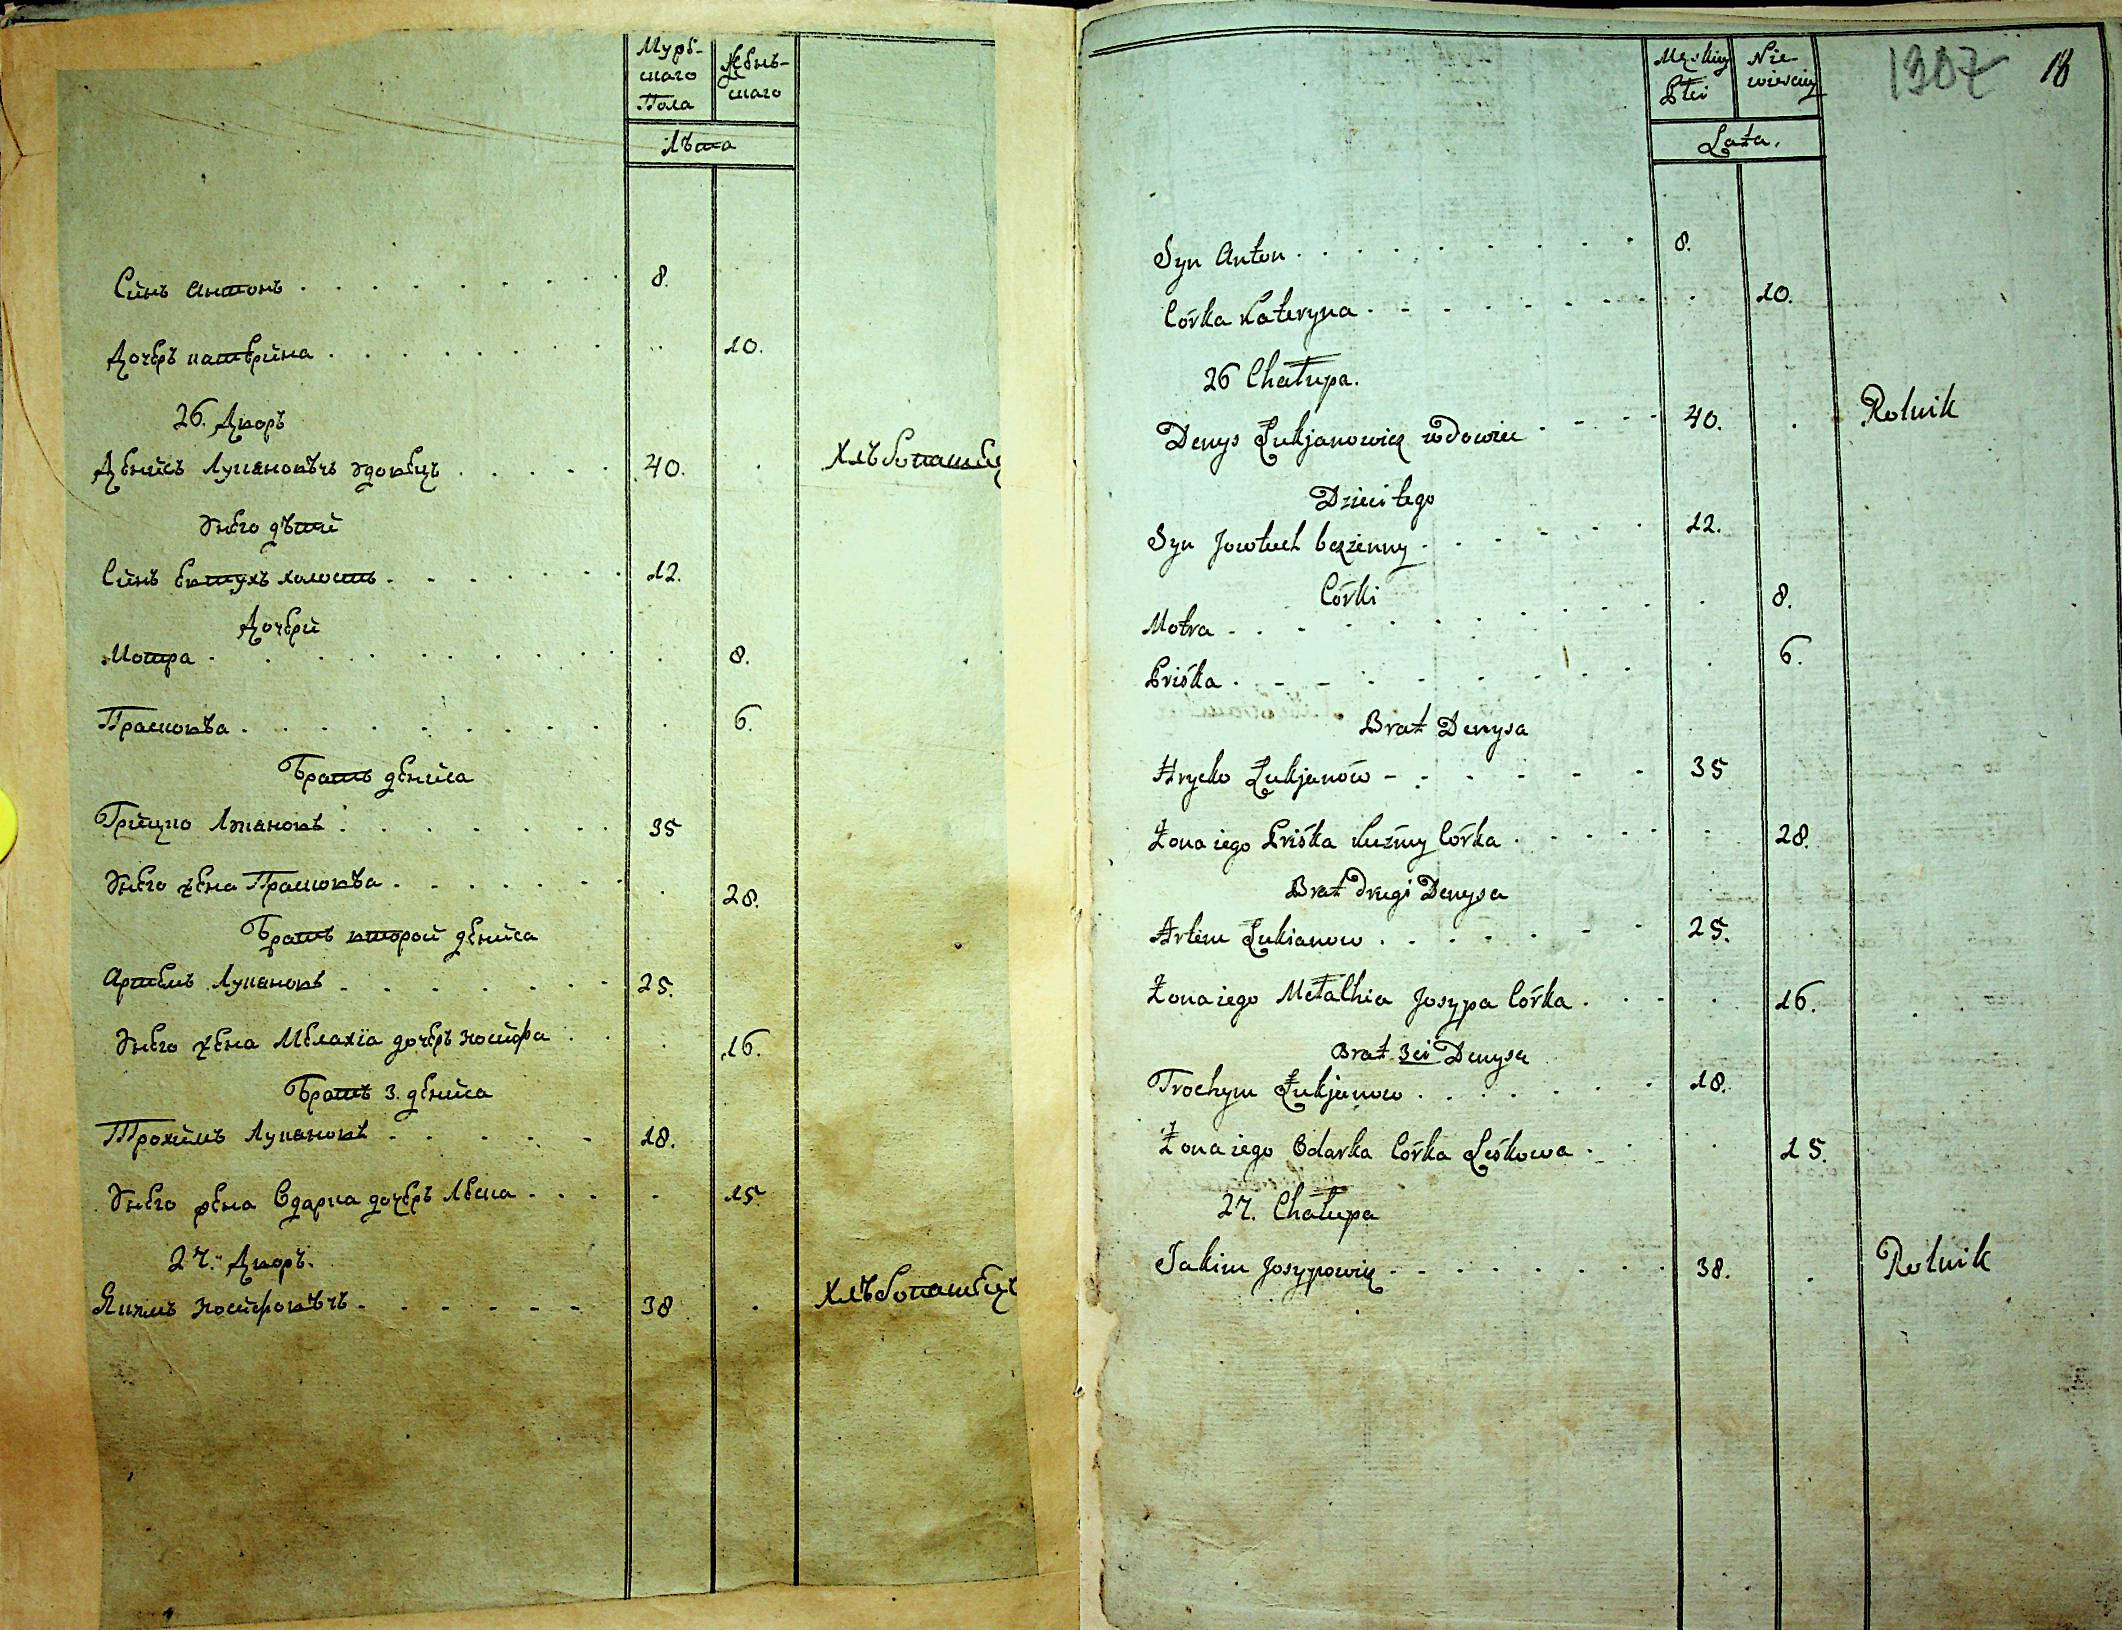 Мужс-
каго
Пола
Женъ-
скаго
Лѣта
Синъ Антонъ . . . . . . . . . 8.
Дочерь катерина . . . . . . . . . . 10.
26. Дворъ
Денисъ Лукановѣчъ вдовецъ . . . . . 40. . Хлѣбопашец
Унего дѣти
Синъ Евтухъ холостъ . . . . . . . 12.
Дочери
Мотра . . . . . . . . . . . 8.
Прасковѣа . . . . . . . . . . 6.
Братъ дениса
Грицко Лукановъ . . . . . . . 35
Унего жена Прасковѣа . . . . . . . . 28.
Братъ второй дениса
Артемъ Лукановъ . . . . . . . 25.
Унего жена Мелахіа дочерь иосифа . . . 16.
Братъ 3. дениса
Трохимъ Лукановъ . . . . . 18.
Унего жена Одарка дочерь Леска . . . . 15.
27. Дворъ.
Якимъ иосифовѣчъ . . . . . . 38 . Хлѣбопашецъ
Męskiey
Płci
Nie-
wieściey
1307 18
Lata.
Syn Anton . . . . . . . . . 8.
Córka Kateryna . . . . . . . . 10.
26 Chałupa.
Denys Łukjanowicz wdowiec . . . . 40. . Rolnik
Dzieci tego
Syn Jowtuch bezżenny . . . . . 12.
Córki
Motra . . . . . . . . . . 8.
Priśka . . . . . . . . . 6.
Brat Denysa
Hrycko Łukjanów . . . . . . 35
Żona iego Priśka Kuźmy Córka . . . . . . 28.
Brat drugi Denysa
Artem Łukianow . . . . . . . 25.
Żona iego Metalhia Josypa Córka . . . . 16.
Brat 3ci Denysa
Trochym Łukjanow . . . . . . 18.
Żona iego Odarka Córka Leśkowa . . . 15.
27. Chałupa
Jakim Josypowicz . . . . . . . . 38. . Rolnik